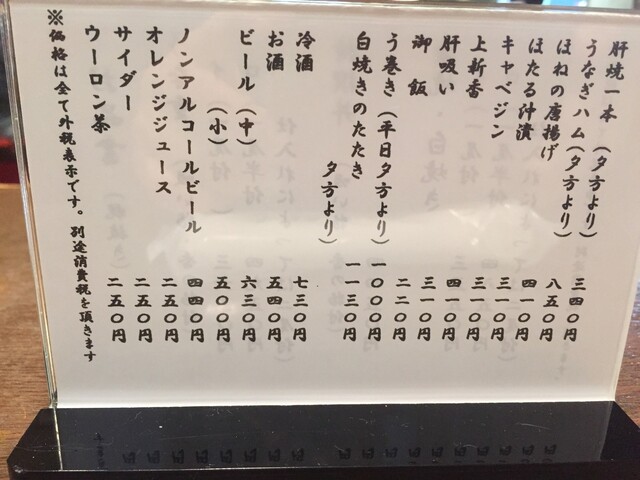 肝焼一本 (夕方より) 三四〇円
うなぎハム(夕方より) 八五〇円
ほねの唐揚げ 四一〇円
ほたる沖漬 三一〇円
キャベジン 三一〇円
上新香 四一〇円
肝吸い 三一〇円
御飯 二二〇円
う巻き(平日夕方より) 一〇〇〇円
白焼きのたたき 一一三〇円
夕方より)
冷酒 七三〇円
お酒 五四〇円
ビール(中) 六三〇円
(小) 五〇〇円
ノンアルコールビール 四四〇円
オレンジジュース 二五〇円
サイダー 二五〇円
ウーロン茶 二五〇円
※価格は全て外税表示です。別途消費税を頂きます